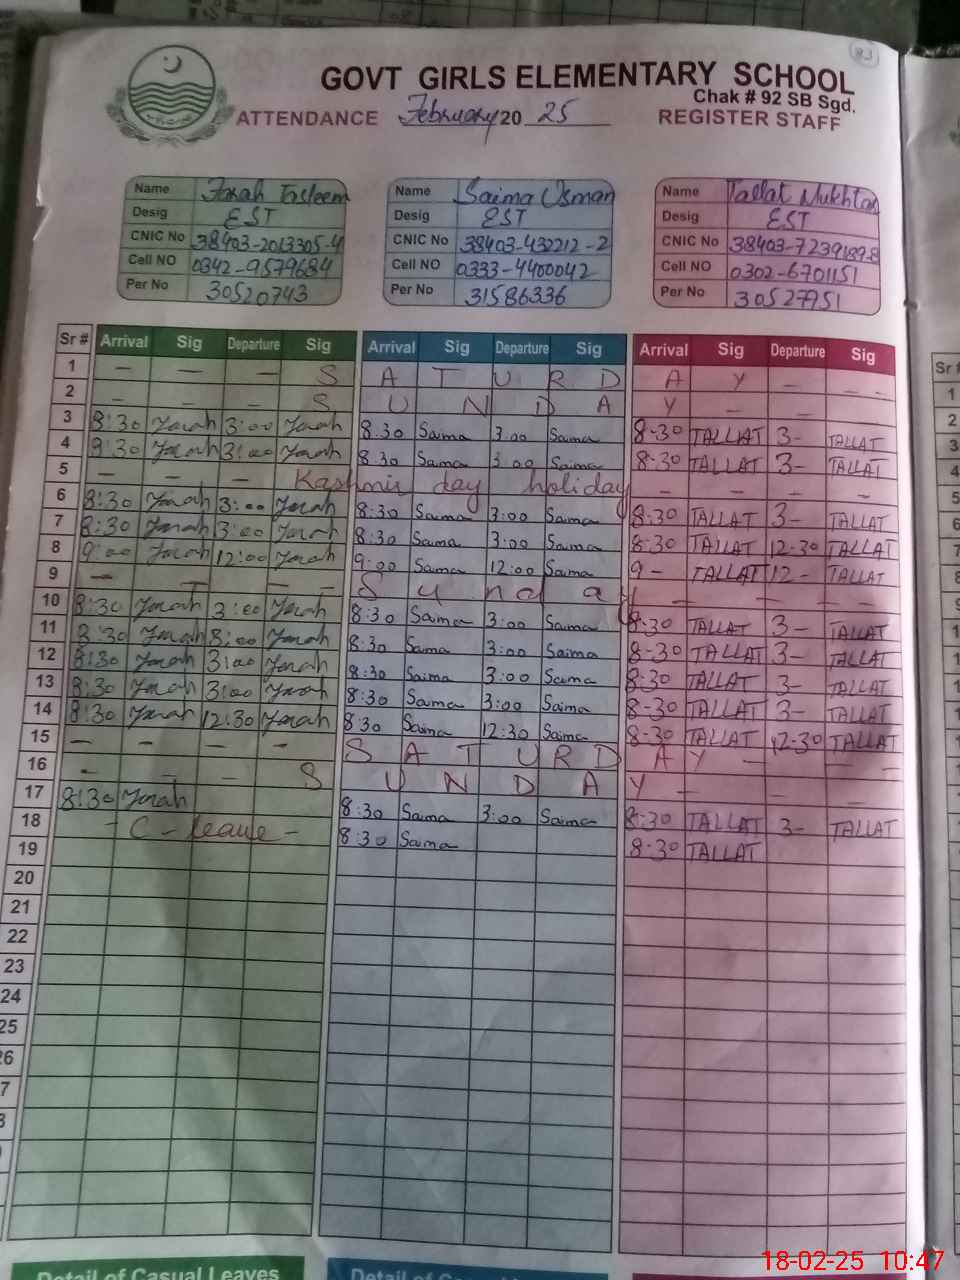 83
GOVT GIRLS ELEMENTARY SCHOOL
Chak # 92 SB Sgd.
ATTENDANCE February 20 25 REGISTER STAFF
Name Farah Tasleem Name Saima Usman Name Tallat Mukhtar
Desig EST Desig EST Desig EST
CNIC No 38403-2013305-4 CNIC No 38403-432212-2 CNIC No 38403-7239189-8
Cell NO 0342-9579684 Cell NO 0333-4400042 Cell NO 0302-6701151
Per No 30520743 Per No 31586336 Per No 30527951
Sr # Arrival Sig Departure Sig Arrival Sig Departure Sig Arrival Sig Departure Sig Sr #
1 — — — S A T U R D A Y — —
2 — — — S U N D A Y — —
3 8:30 Farah 3:00 Farah 8:30 Saima 3:00 Saima 8-30 TALLAT 3- TALLAT
4 8:30 Farah 3:00 Farah 8:30 Saima 3:00 Saima 8-30 TALLAT 3- TALLAT
5 — — — Kashmir day holiday — — — —
6 8:30 Farah 3:00 Farah 8:30 Saima 3:00 Saima 8-30 TALLAT 3- TALLAT
7 8:30 Farah 3:00 Farah 8:30 Saima 3:00 Saima 8-30 TALLAT 12-30 TALLAT
8 9:00 Farah 12:00 Farah 9:00 Saima 12:00 Saima 9- TALLAT 12- TALLAT
9 — — — — S u n d a y — — — —
10 8:30 Farah 3:00 Farah 8:30 Saima 3:00 Saima 8-30 TALLAT 3- TALLAT
11 8:30 Farah 3:00 Farah 8:30 Saima 3:00 Saima 8-30 TALLAT 3- TALLAT
12 8:30 Farah 3:00 Farah 8:30 Saima 3:00 Saima 8-30 TALLAT 3- TALLAT
13 8:30 Farah 3:00 Farah 8:30 Saima 3:00 Saima 8-30 TALLAT 3- TALLAT
14 8:30 Farah 12:30 Farah 8:30 Saima 12:30 Saima 8-30 TALLAT 12-30 TALLAT
15 — — — — S A T U R D A Y — —
16 — — — S U N D A Y — — —
17 8:30 Farah 8:30 Saima 3:00 Saima 8-30 TALLAT 3- TALLAT
18 - C - leave - 8:30 Saima 8-30 TALLAT
19
20
21
22
23
24
25
26
Detail of Casual Leaves
18-02-25 10:47